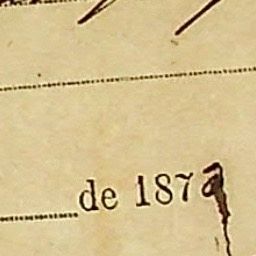 de 187